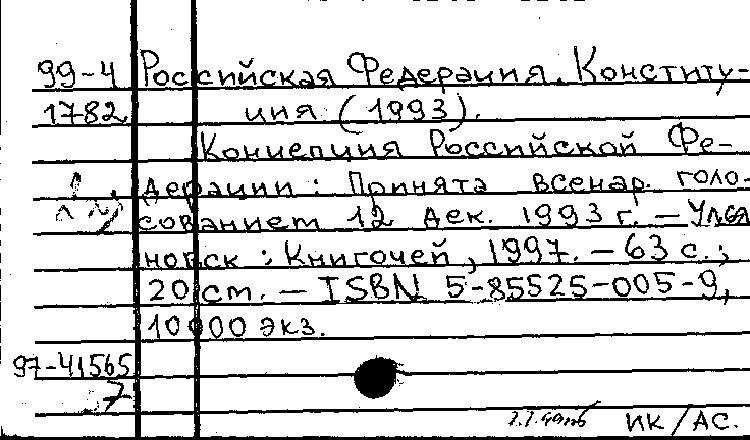 99-4 Российская Федерация. Конститу-
1782 ция (1993).
Концепция Российской Фе-
дерации: Принята всенар. голо-
сованием 12 дек. 1993 г. – Улья
новск : Книгочей, 1997. – 63 с.;
20 cm. – ISBN 5-85525-005-9,
10000 экз.
97-41565
7
ИК/АС.